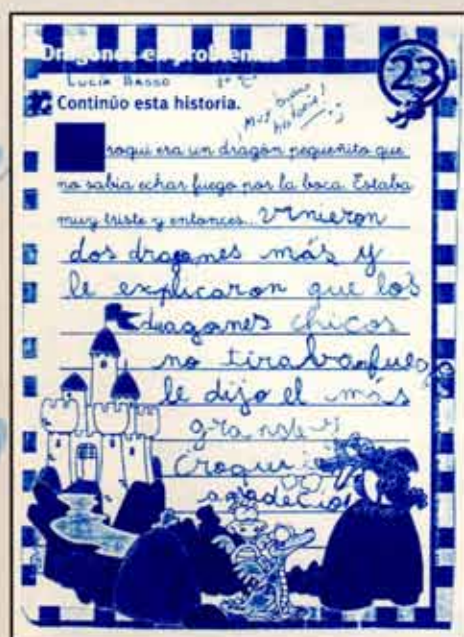 Dragones en problemas
23
LUCÍA BASSO 1º "C"
Continúo esta historia.
¡Muy buena
historia!
roqui era un dragón pequeñito que
no sabía echar fuego por la boca. Estaba
muy triste y entonces... vinieron
dos dragones más y
le explicaron que los
dragones chicos
no tiraban fuego
le dijo el más
grande y
Croqui
agradeció